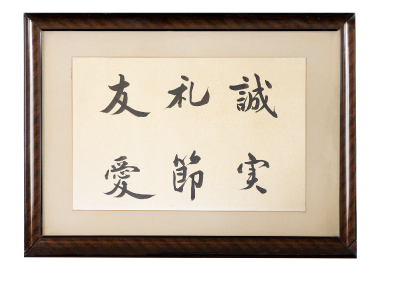 誠実
礼節
友愛